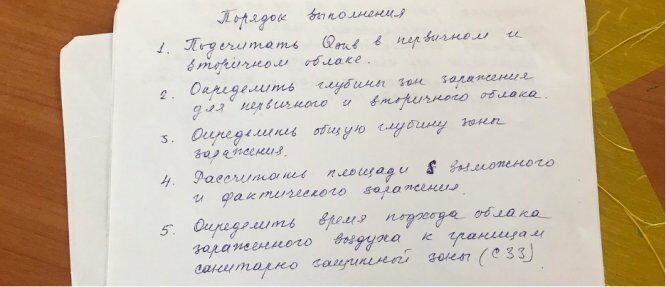 Порядок выполнения
1. Подсчитать Qэкв в первичном и
вторичном облаке.
2. Определить глубины зон заражения
для первичного и вторичного облака.
3. Определить общую глубину зоны
заражения.
4. Рассчитать площади S возможного
и фактического заражения.
5. Определить время подхода облака
зараженного воздуха к границам
санитарно защитной зоны (СЗЗ)